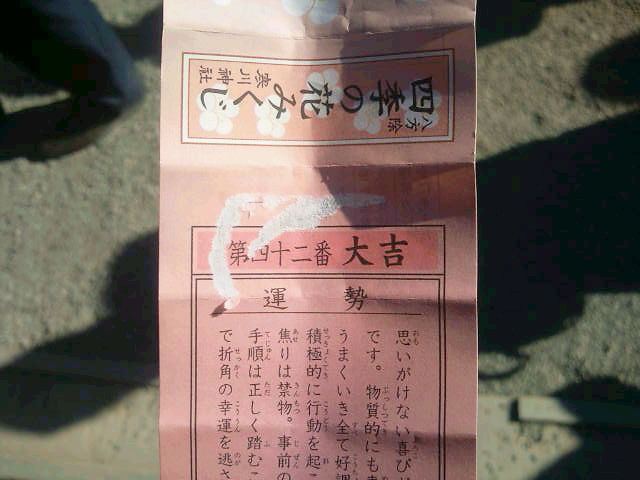 八方除
四季の花みくじ
寒川神社
第四十二番 大吉
運勢
思いがけない喜び
です。物質的にも
うまくいき全て好調
積極的に行動を起こ
焦りは禁物。事前の
手順は正しく踏むこ
で折角の幸運を逃さ